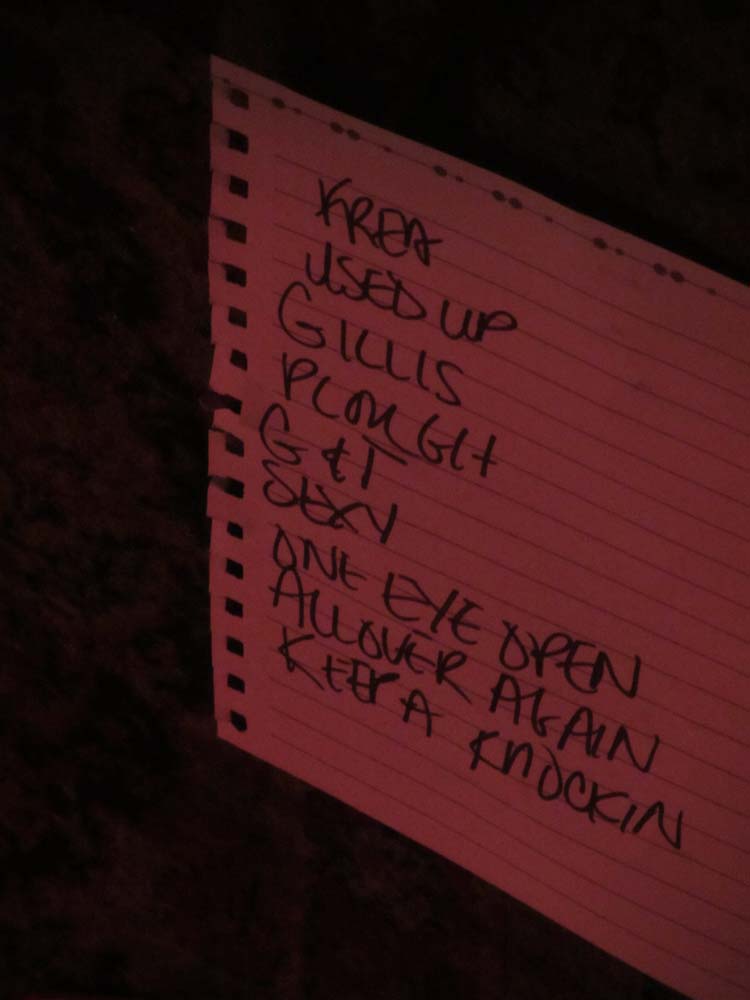 KREA
USED UP
GILLIS
PLOUGH
G & T
SEXY
ONE EYE OPEN
ALL OVER AGAIN
KEEP A KNOCKIN